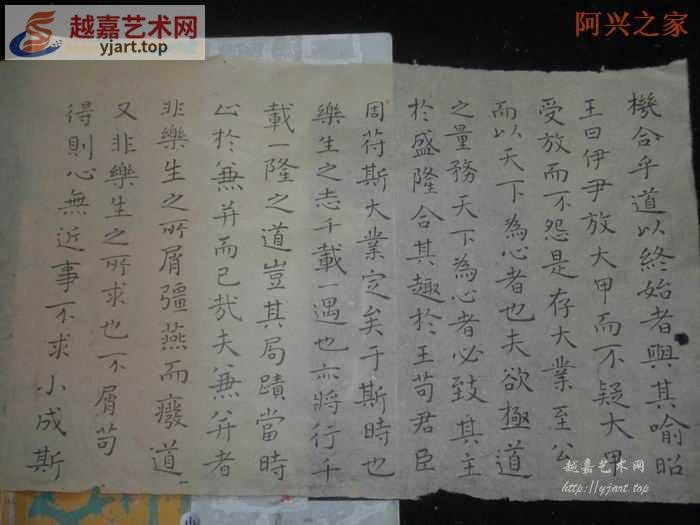 越嘉艺术网
yjart.top
阿兴之家
機合乎道以終始者與其喻昭
王曰伊尹放大甲而不疑大甲
受放而不怨是存大業至公
而以天下為心者也夫欲極道
之量務天下為心者必致其主
於盛隆合其趣於王苟君臣
同苻斯大業定矣于斯時也
樂生之志千載一遇也亦將行千
載一隆之道豈其局蹟當時
止於兼并而已㢤夫兼并者
非樂生之所屑彊燕而癈道
又非樂生之所求也不屑苟
得則心無近事不求小成斯
越嘉艺术网
http://yjart.top